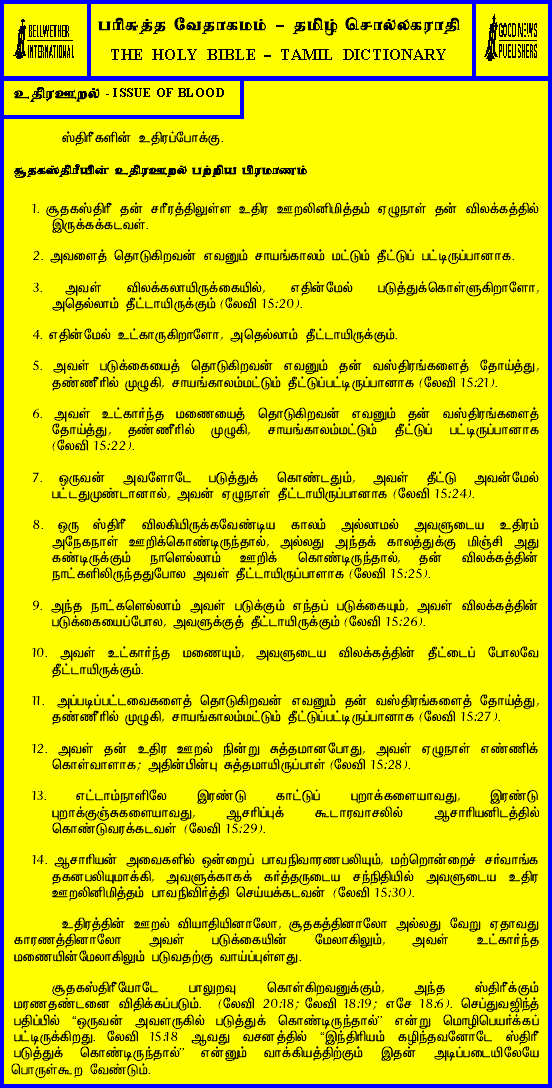 BELLWETHER
INTERNATIONAL
பரிசுத்த வேதாகமம் – தமிழ் சொல்லகராதி
THE HOLY BIBLE – TAMIL DICTIONARY
GOOD NEWS
PUBLISHERS
உதிரஊறல் - ISSUE OF BLOOD
ஸ்திரீகளின் உதிரப்போக்கு.
சூதகஸ்திரீயின் உதிரஊறல் பற்றிய பிரமாணம்
1. சூதகஸ்திரீ தன் சரீரத்திலுள்ள உதிர ஊறலினிமித்தம் ஏழுநாள் தன் விலக்கத்தில்
இருக்கக்கடவள்.
2. அவளைத் தொடுகிறவன் எவனும் சாயங்காலம் மட்டும் தீட்டுப் பட்டிருப்பானாக.
3. அவள் விலக்கலாயிருக்கையில், எதின்மேல் படுத்துக்கொள்ளுகிறாளோ,
அதெல்லாம் தீட்டாயிருக்கும் (லேவி 15:20).
4. எதின்மேல் உட்காருகிறாளோ, அதெல்லாம் தீட்டாயிருக்கும்.
5. அவள் படுக்கையைத் தொடுகிறவன் எவனும் தன் வஸ்திரங்களைத் தோய்த்து,
தண்ணீரில் முழுகி, சாயங்காலம்மட்டும் தீட்டுப்பட்டிருப்பானாக (லேவி 15:21).
6. அவள் உட்கார்ந்த மணையைத் தொடுகிறவன் எவனும் தன் வஸ்திரங்களைத்
தோய்த்து, தண்ணீரில் முழுகி, சாயங்காலம்மட்டும் தீட்டுப் பட்டிருப்பானாக
(லேவி 15:22).
7. ஒருவன் அவளோடே படுத்துக் கொண்டதும், அவள் தீட்டு அவன்மேல்
பட்டதுமுண்டானால், அவன் ஏழுநாள் தீட்டாயிருப்பானாக (லேவி 15:24).
8. ஒரு ஸ்திரீ விலகியிருக்கவேண்டிய காலம் அல்லாமல் அவளுடைய உதிரம்
அநேகநாள் ஊறிக்கொண்டிருந்தால், அல்லது அந்தக் காலத்துக்கு மிஞ்சி அது
கண்டிருக்கும் நாளெல்லாம் ஊறிக் கொண்டிருந்தால், தன் விலக்கத்தின்
நாட்களிலிருந்ததுபோல அவள் தீட்டாயிருப்பாளாக (லேவி 15:25).
9. அந்த நாட்களெல்லாம் அவள் படுக்கும் எந்தப் படுக்கையும், அவள் விலக்கத்தின்
படுக்கையைப்போல, அவளுக்குத் தீட்டாயிருக்கும் (லேவி 15:26).
10. அவள் உட்கார்ந்த மணையும், அவளுடைய விலக்கத்தின் தீட்டைப் போலவே
தீட்டாயிருக்கும்.
11. அப்படிப்பட்டவைகளைத் தொடுகிறவன் எவனும் தன் வஸ்திரங்களைத் தோய்த்து,
தண்ணீரில் முழுகி, சாயங்காலம்மட்டும் தீட்டுப்பட்டிருப்பானாக (லேவி 15:27).
12. அவள் தன் உதிர ஊறல் நின்று சுத்தமானபோது, அவள் ஏழுநாள் எண்ணிக்
கொள்வாளாக; அதின்பின்பு சுத்தமாயிருப்பாள் (லேவி 15:28).
13. எட்டாம்நாளிலே இரண்டு காட்டுப் புறாக்களையாவது, இரண்டு
புறாக்குஞ்சுகளையாவது, ஆசரிப்புக் கூடாரவாசலில் ஆசாரியனிடத்தில்
கொண்டுவரக்கடவள் (லேவி 15:29).
14. ஆசாரியன் அவைகளில் ஒன்றைப் பாவநிவாரணபலியும், மற்றொன்றைச் சர்வாங்க
தகனபலியுமாக்கி, அவளுக்காகக் கர்த்தருடைய சந்நிதியில் அவளுடைய உதிர
ஊறலினிமித்தம் பாவநிவிர்த்தி செய்யக்கடவன் (லேவி 15:30).
உதிரத்தின் ஊறல் வியாதியினாலோ, சூதகத்தினாலோ அல்லது வேறு ஏதாவது
காரணத்தினாலோ அவள் படுக்கையின் மேலாகிலும், அவள் உட்கார்ந்த
மணையின்மேலாகிலும் படுவதற்கு வாய்ப்புள்ளது.
சூதகஸ்திரீயோடே பாலுறவு கொள்கிறவனுக்கும், அந்த ஸ்திரீக்கும்
மரணதண்டனை விதிக்கப்படும். (லேவி 20:18; லேவி 18:19; எசே 18:6). செப்துவஜிந்த்
பதிப்பில் “ஒருவன் அவளருகில் படுத்துக் கொண்டிருந்தால்” என்று மொழிபெயர்க்கப்
பட்டிருக்கிறது. லேவி 15:18 ஆவது வசனத்தில் “இந்திரியம் கழிந்தவனோடே ஸ்திரீ
படுத்துக் கொண்டிருந்தால்” என்னும் வாக்கியத்திற்கும் இதன் அடிப்படையிலேயே
பொருள்கூற வேண்டும்.